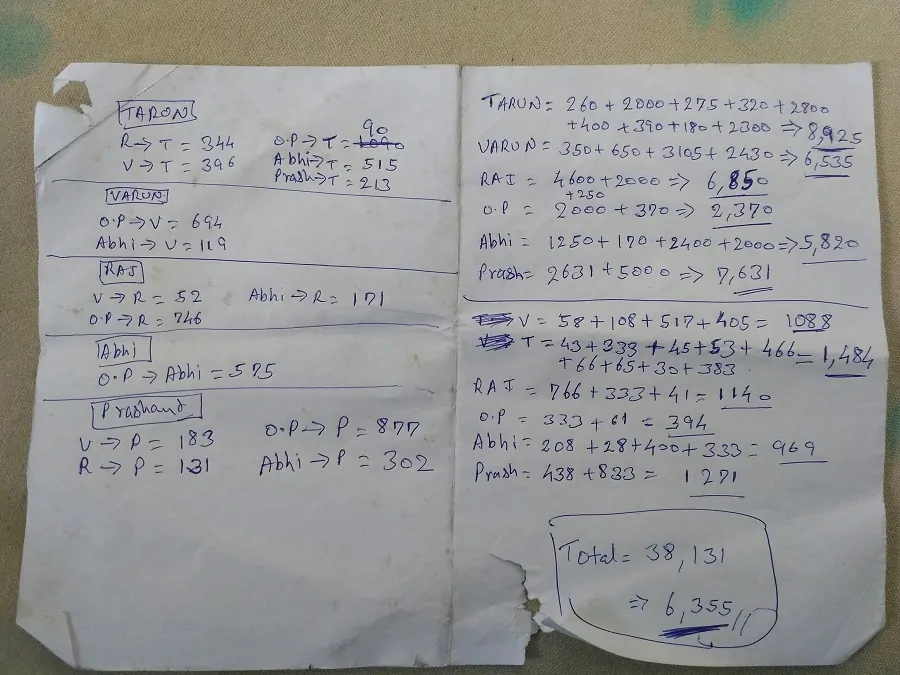 TARUN
R→T = 344
V→T = 396
90
O.P→T = 1090
Abhi→T = 515
Prash→T = 213
VARUN
O.P→V = 694
Abhi→V = 119
RAJ
V→R = 52
O.P→R = 746
Abhi→R = 171
Abhi
O.P → Abhi = 575
Prashant
V→P = 183
R→P = 131
O.P→P = 877
Abhi→P = 302
TARUN = 260 + 2000 + 275 + 320 + 2800
+400 + 390 + 180 + 2300 ⇒ 8,925
VARUN = 350 + 650 + 3105 + 2430 ⇒ 6,535
RAJ = 4600 + 2000 ⇒ 6,850
+250
O.P = 2000 + 370 ⇒ 2,370
Abhi = 1250 + 170 + 2400 + 2000 ⇒ 5,820
Prash = 2631 + 5000 ⇒ 7,631
V = 58 + 108 + 517 + 405 = 1088
T = 43 + 333 + 45 + 53 + 466 = 1,484
+ 66 + 65 + 30 + 383
RAJ = 766 + 333 + 41 = 1140
O.P = 333 + 61 = 394
Abhi = 208 + 28 + 400 + 333 = 969
Prash = 438 + 833 = 1271
Total = 38,131
⇒ 6,355